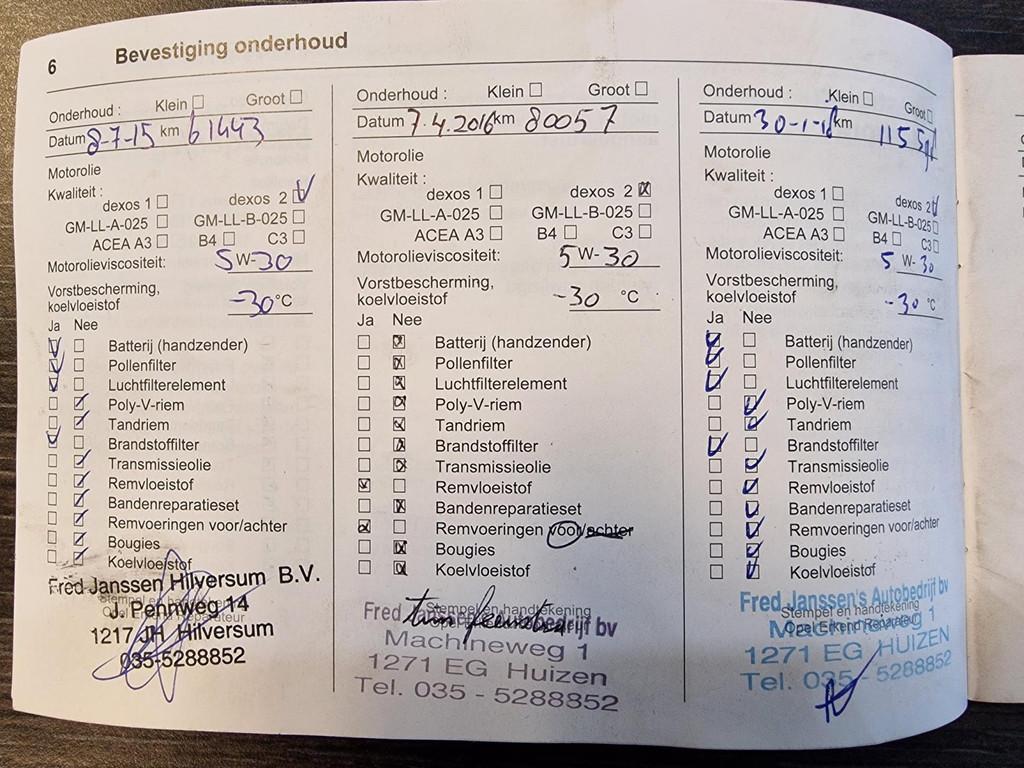 6
Bevestiging onderhoud
Onderhoud : Klein Groot
Datum 8-7-15 km 61443
Motorolie
Kwaliteit :
dexos 1 dexos 2
GM-LL-A-025 GM-LL-B-025
ACEA A3 B4 C3
Motorolieviscositeit: 5 W-30
Vorstbescherming,
koelvloeistof -30 °C
Ja Nee
Batterij (handzender)
Pollenfilter
Luchtfilterelement
Poly-V-riem
Tandriem
Brandstoffilter
Transmissieolie
Remvloeistof
Bandenreparatieset
Remvoeringen voor/achter
Bougies
Koelvloeistof
Fred Janssen Hilversum B.V.
J. Pennweg 14
1217 JH Hilversum
035-5288852
Onderhoud : Klein Groot
Datum 7.4.2016 km 80057
Motorolie
Kwaliteit :
dexos 1 dexos 2
GM-LL-A-025 GM-LL-B-025
ACEA A3 B4 C3
Motorolieviscositeit: 5 W-30
Vorstbescherming,
koelvloeistof -30 °C
Ja Nee
Batterij (handzender)
Pollenfilter
Luchtfilterelement
Poly-V-riem
Tandriem
Brandstoffilter
Transmissieolie
Remvloeistof
Bandenreparatieset
Remvoeringen voor/achter
Bougies
Koelvloeistof
Stempel en handtekening
Fred Janssen's Autobedrijf bv
Machineweg 1
1271 EG Huizen
Tel. 035 - 5288852
Onderhoud : Klein Groot
Datum 30-1-18 km
Motorolie
Kwaliteit :
dexos 1 dexos 2
GM-LL-A-025 GM-LL-B-025
ACEA A3 B4 C3
Motorolieviscositeit: 5 W-30
Vorstbescherming,
koelvloeistof -30 °C
Ja Nee
Batterij (handzender)
Pollenfilter
Luchtfilterelement
Poly-V-riem
Tandriem
Brandstoffilter
Transmissieolie
Remvloeistof
Bandenreparatieset
Remvoeringen voor/achter
Bougies
Koelvloeistof
Fred Janssen's Autobedrijf bv
Stempel en handtekening
Opel Erkend Reparateur
Machineweg 1
1271 EG HUIZEN
Tel. 035 - 5288852